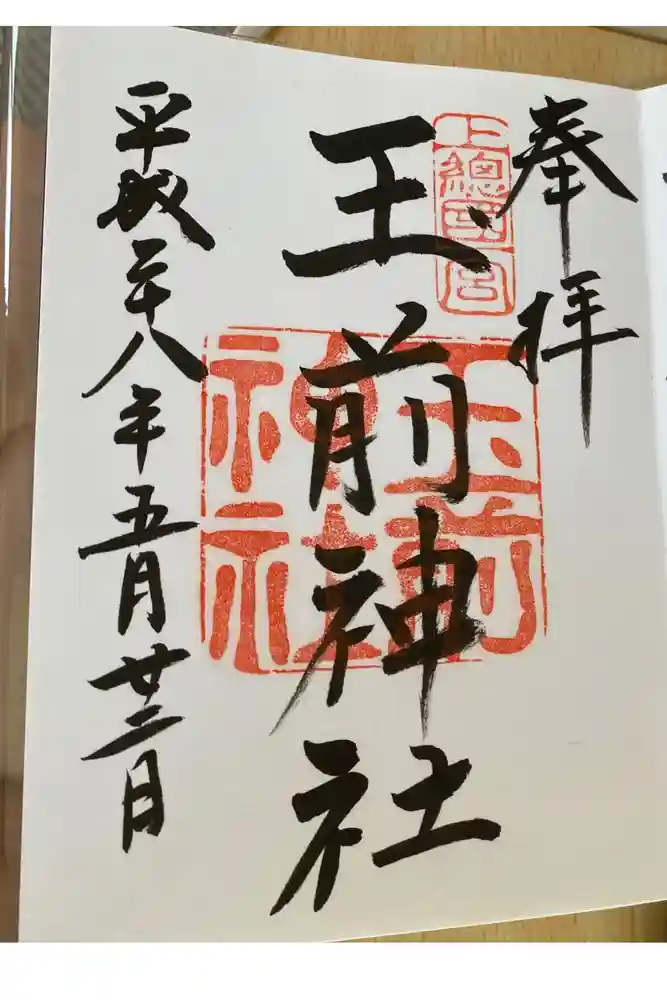 奉拝
上總國一宮
玉前神社
玉前神社
平成二十八年五月廿二日